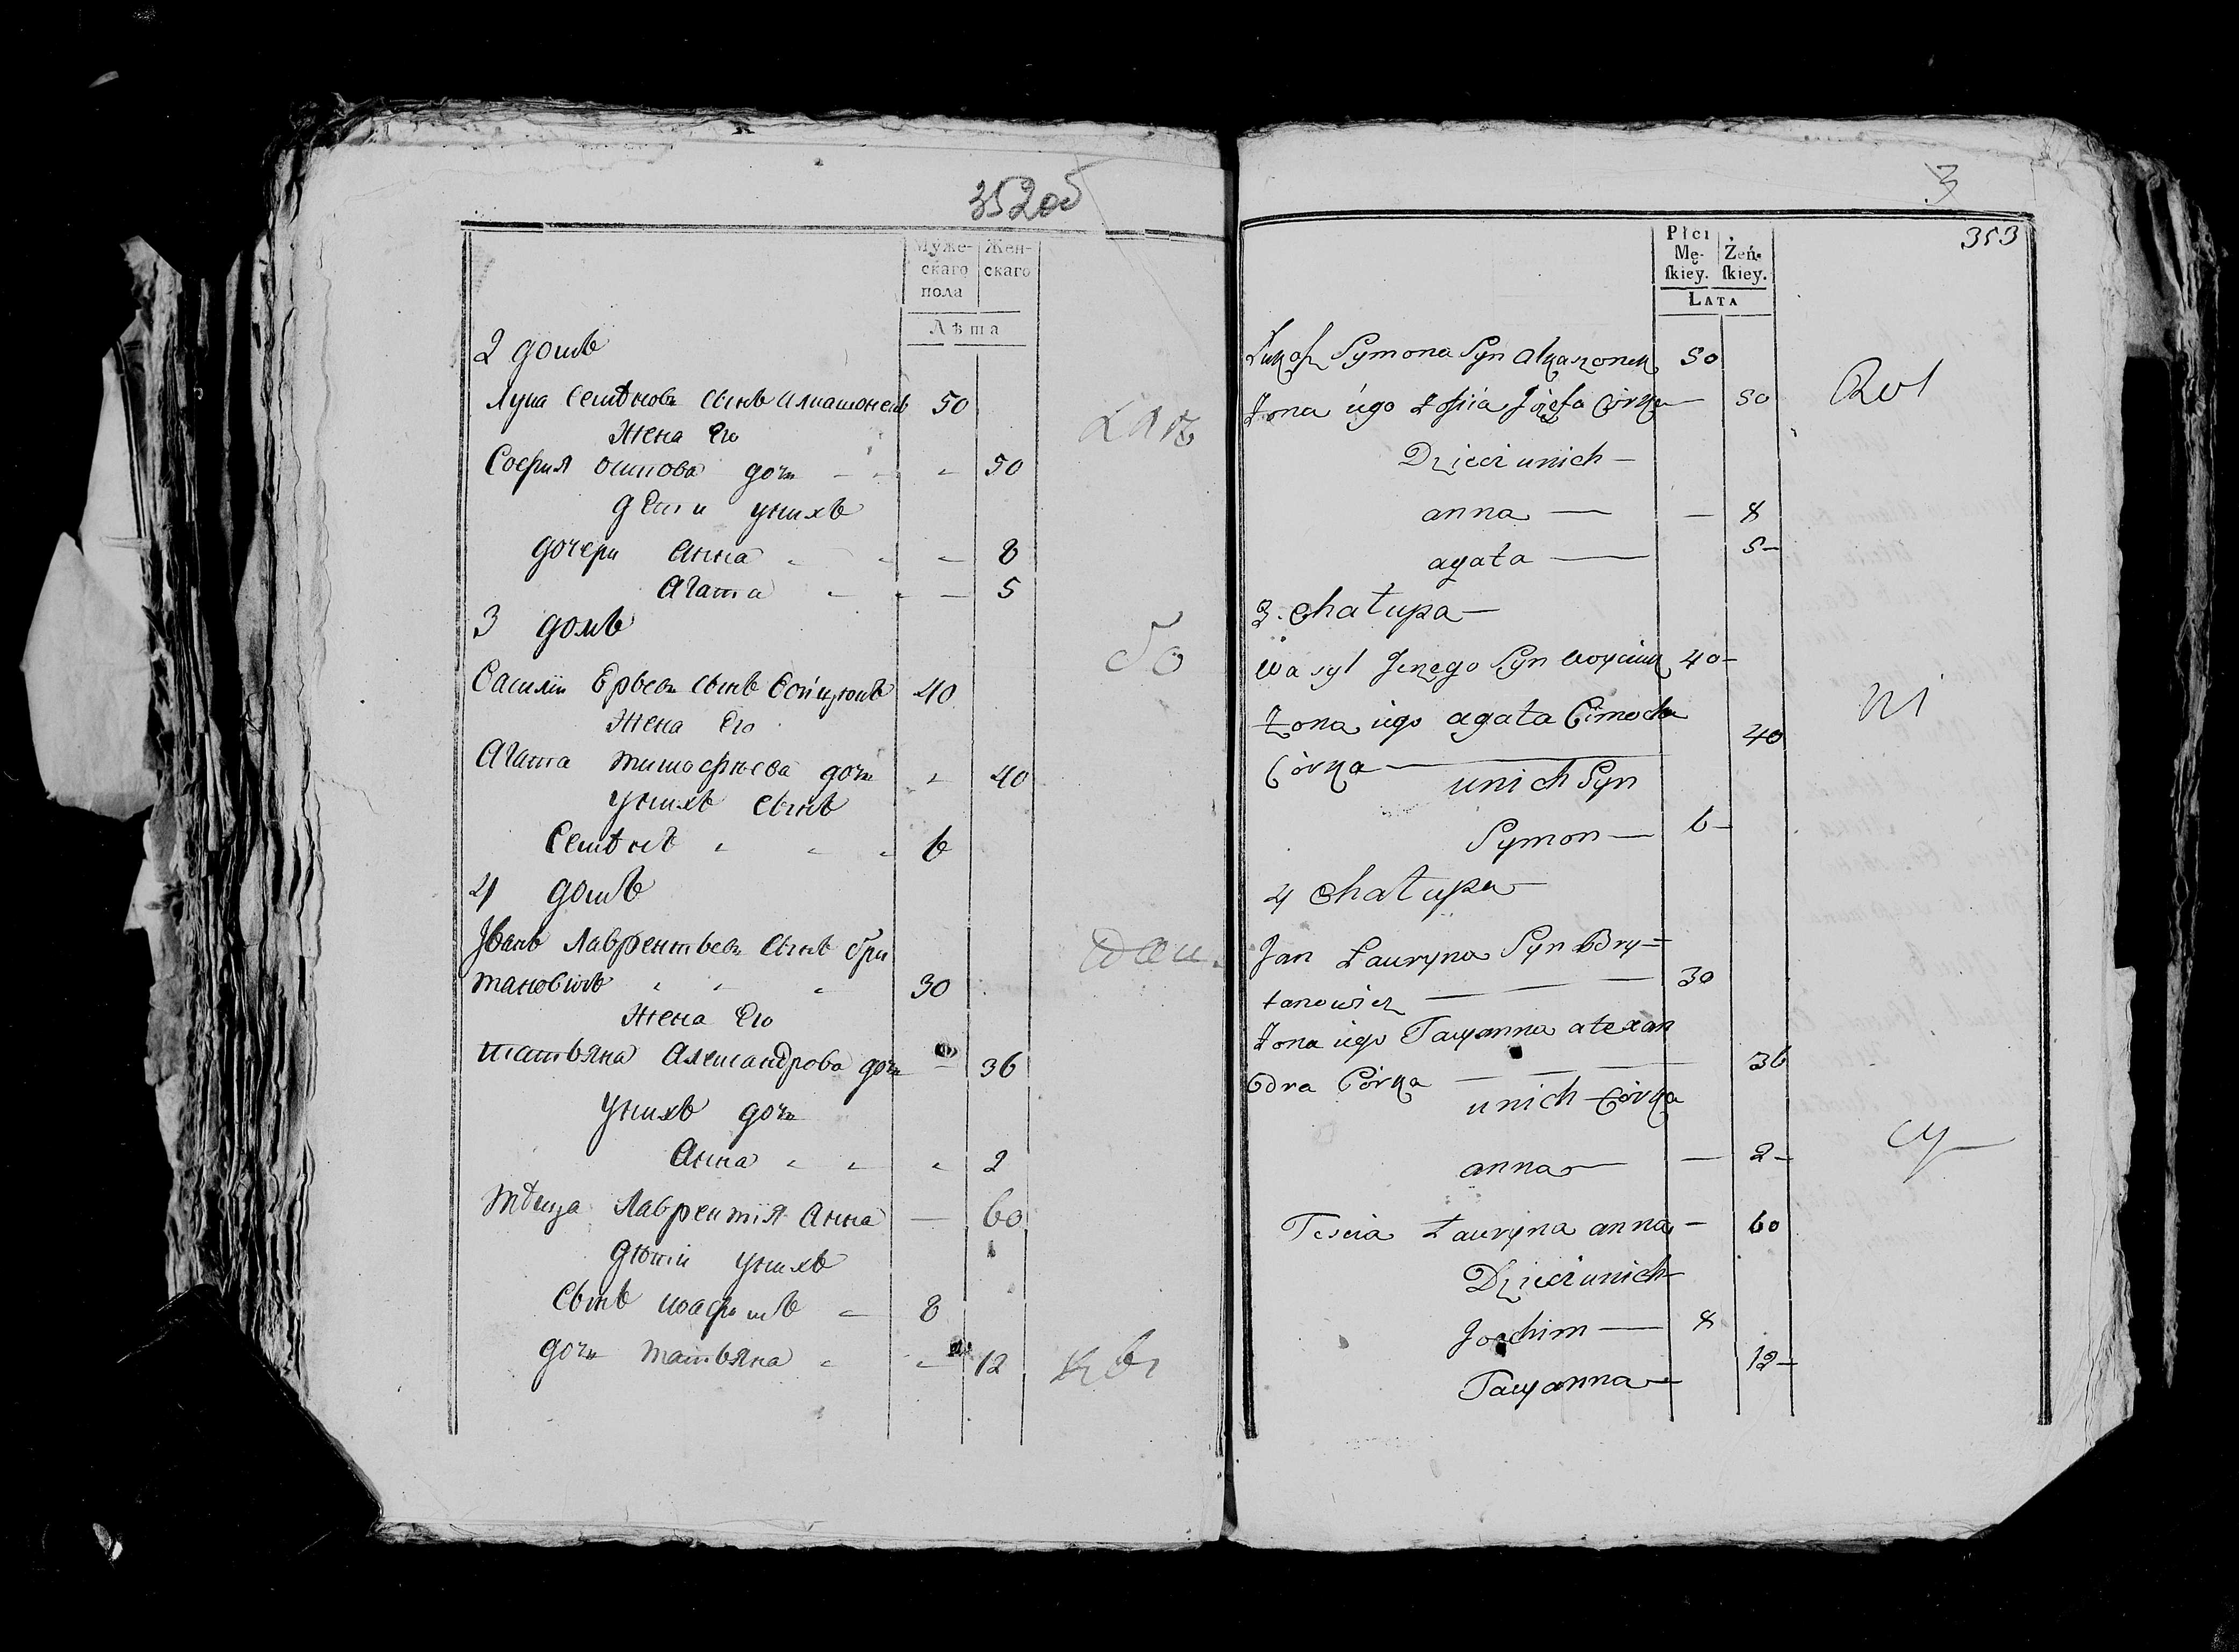 352об
Муже-
скаго
пола
Жен-
скаго
Лѣта
2 домъ
Лука Семѣновъ сынъ Алкашонекъ 50
Жена Его
София осипова дочь - - - 50
дети унихъ
дочери Анна - - - 8
Агата - - - 5
3 домъ
Василiи Ерьевъ сынъ Войцюкъ 40
Жена Его
Агата тимофѣева дочь - 40
унихъ сынъ
Семѣнъ - - - 6
4 домъ
Iванъ Лаврентьевъ сынъ бри
тановичъ - - - 30
Жена Его
татьяна Александрова дочь - 36
унихъ дочь
Анна - - - 2
тѣща Лаврентiя Анна — 60
дѣтiи унихъ
сынъ иоафимъ - 8
дочь татьяна - - 12
3
353
Płci
Mę-
ſkiey.
Żeń-
ſkiey.
LATA
Łukaſz Symona Syn Alkaszonek 50
Zona iego Zofiia Józefa Córka — 50
Dzieci unich —
anna — — 8
agata — 5—
3. Chałupa —
Wasyl Jerzego Syn Woyciuk 40—
Zona iego agata Cimocha
Córka — 40
unich Syn
Symon — 6—
4 Chałupa —
Jan Ławryna Syn Bry=
tanowicz — — — 30
Zona iego Tacyanna alexan
dra Córka — — — 36
unich Córka
anna — — 2—
Tescia Ławryna anna — 60
Dzieci unich
Joachim — 8
Tacyanna — 12—